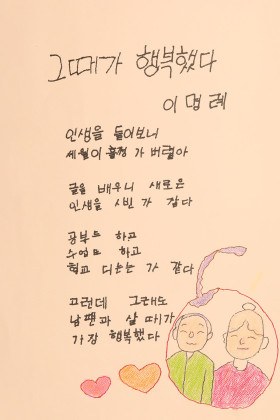 그때가 행복했다
이명례
인생을 돌아보니
세월이 훌쩍 가 버렸아
글을 배우니 새로은
인생을 사는 가 갔다
공부도 하고
수업도 하고
학교 다는 가 갔다
그런데 그래도
남편과 살 때가
가장 행복했다